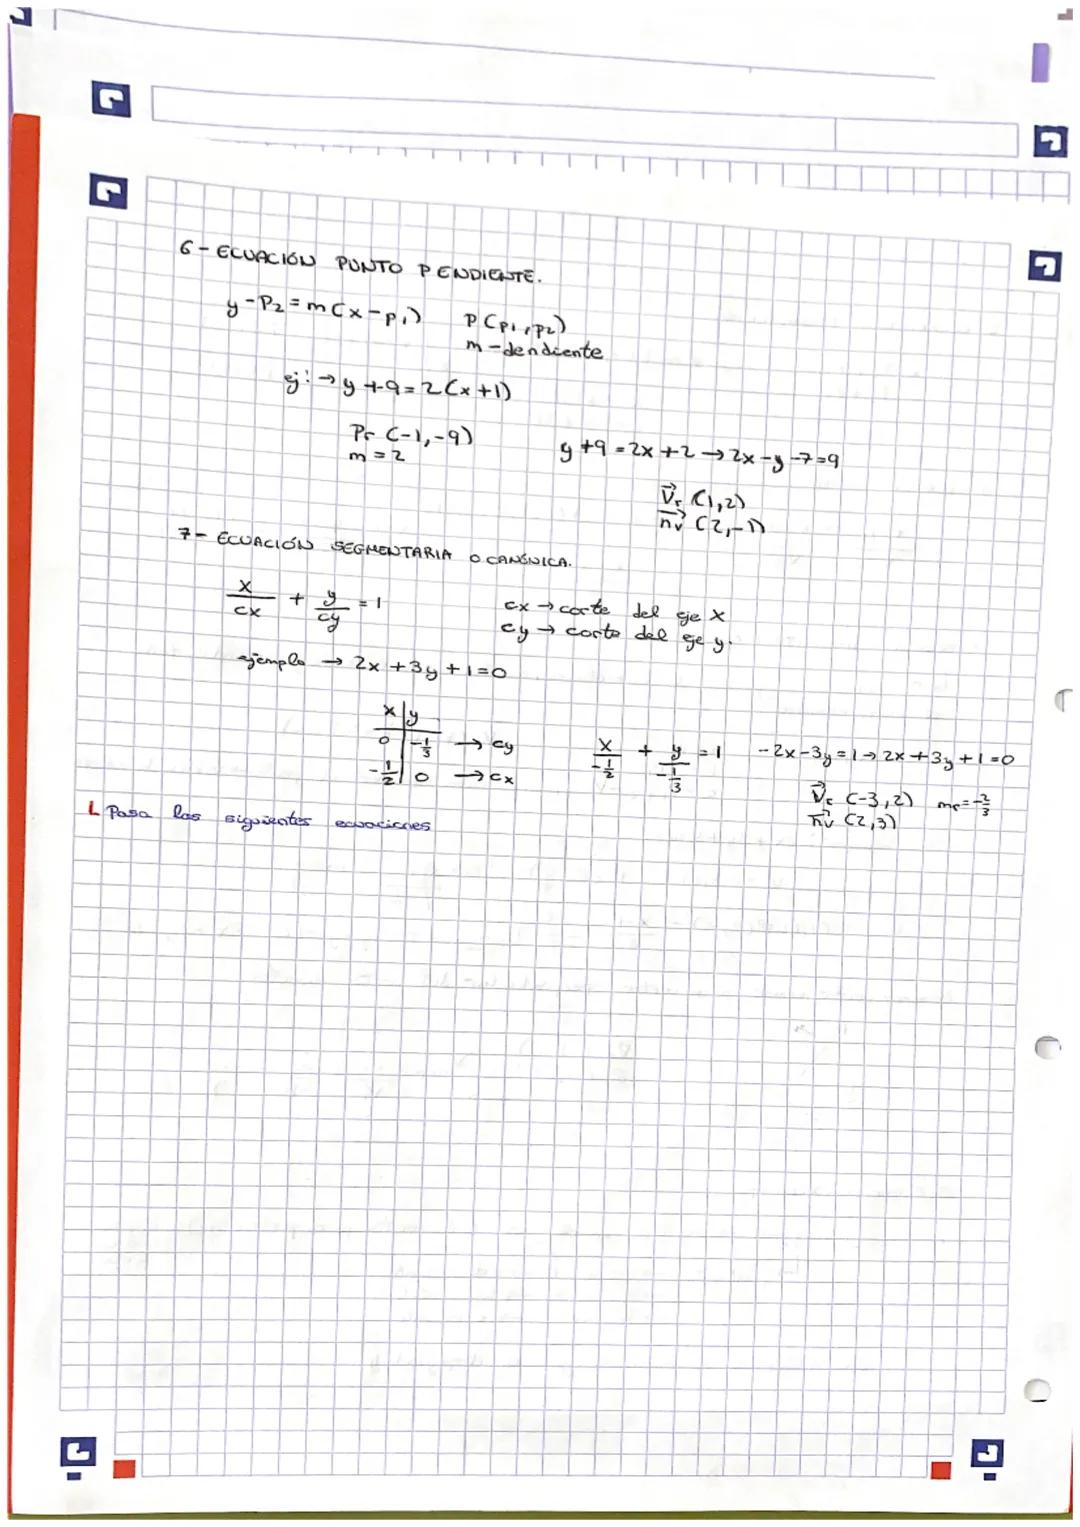 6 - ECUACIÓN PUNTO PENDIENTE.
y - P₂ = m (x - p₁) P (p₁, p₂)
m - dendiente
ej: → y + 9 = 2 (x + 1)
Pr (-1, -9)
m = 2
y + 9 = 2x + 2 → 2x - y - 7 = 9
V⃗r (1, 2)
n⃗v (2, -1)
7 - ECUACIÓN SEGMENTARIA O CANÓNICA.
x/cx + y/cy = 1
cx → corte del eje X
cy → corte del eje y.
ejemplo → 2x + 3y + 1 = 0
x | y
0 | -1/3 → cy
-1/2 | 0 → cx
x/(-1/2) + y/(-1/3) = 1 -2x - 3y = 1 → 2x + 3y + 1 = 0
V⃗r (-3, 2) mr = -2/3
n⃗v (2, 3)
L Pasa las siguientes ecuaciones